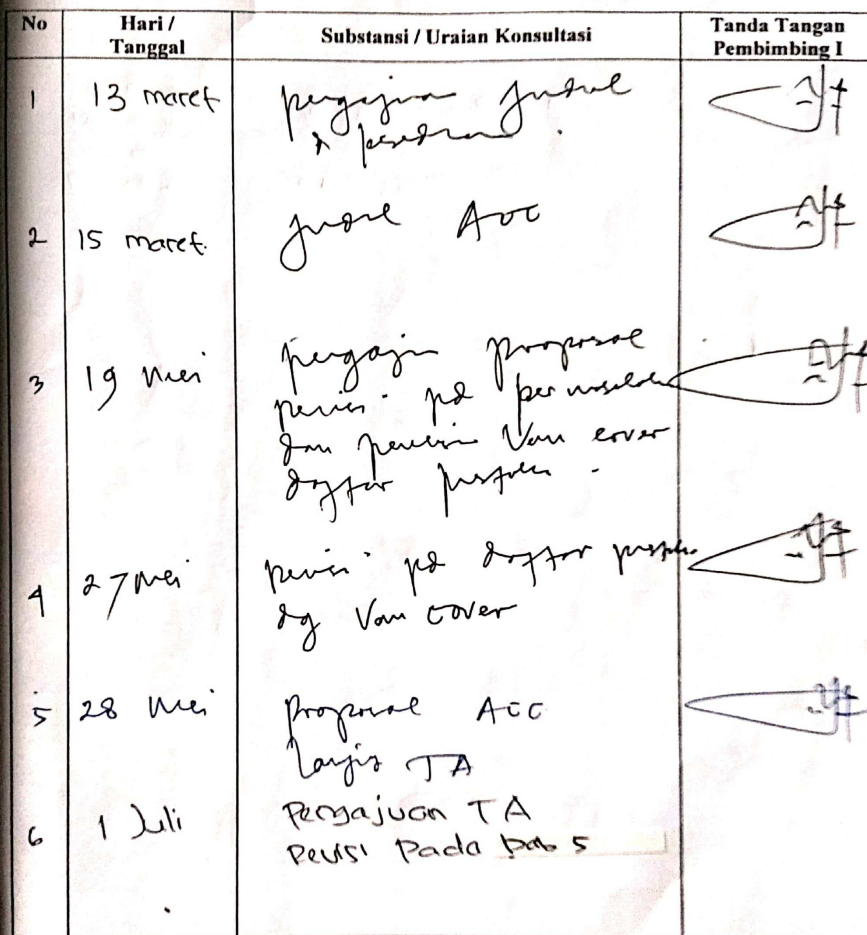 No Hari / Tanggal Substansi / Uraian Konsultasi Tanda Tangan Pembimbing I
1 13 maret pengajuan Judul
&
2 15 maret. Judul ACC
3 19 Mei pengajuan proposal
revisi pd
dan revisi Van cover
daftar pustaka
4 27 Mei revisi pd daftar pustaka
dg Van cover
5 28 Mei Proposal ACC
Lanjut TA
6 1 Juli Pengajuan TA
Revisi Pada bab 5